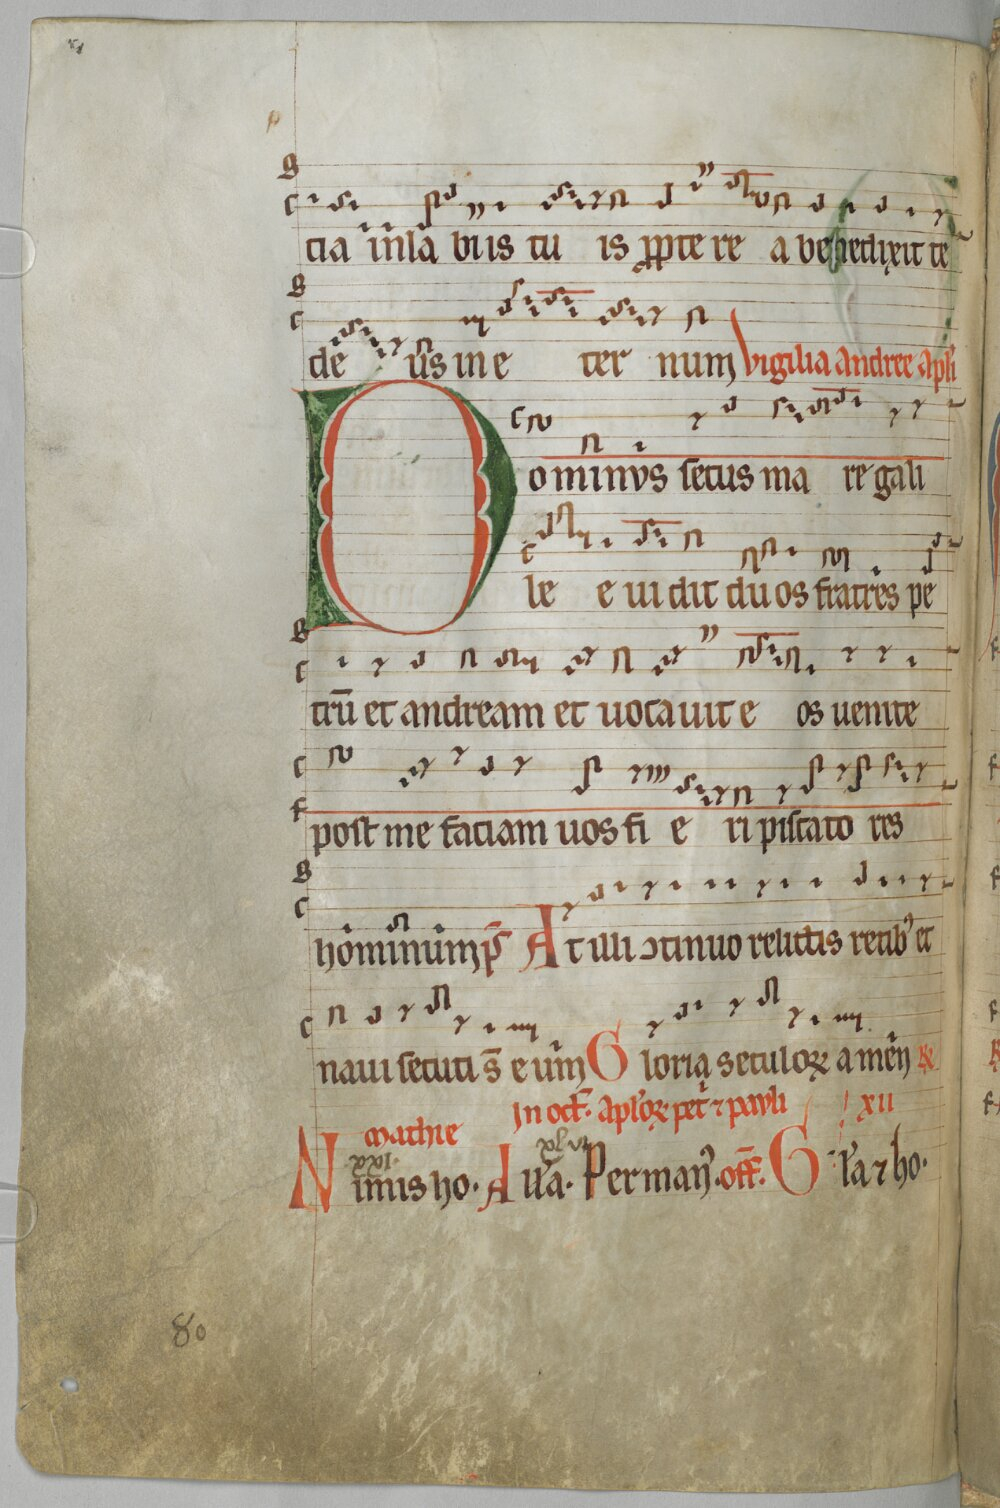 tia in la biis tu is ꝓpte re a benedixit te
de us in e ter num Vigilia andree apl'i
Dominus secus ma re gali
le e uidit duos fratres pe
trū et andream et uocauit e os uenite
post me faciam uos fi e ri piscato res
hominum p̄s At illi ↄtinuo relictis retib' et
naui secuti s̄ eum Gloria seculoꝝ amen
In oct. apl'oꝝ pet' ⁊ pauli xii
mathie
Nimis ho. Permaň. off. Gl'a ⁊ ho.
80